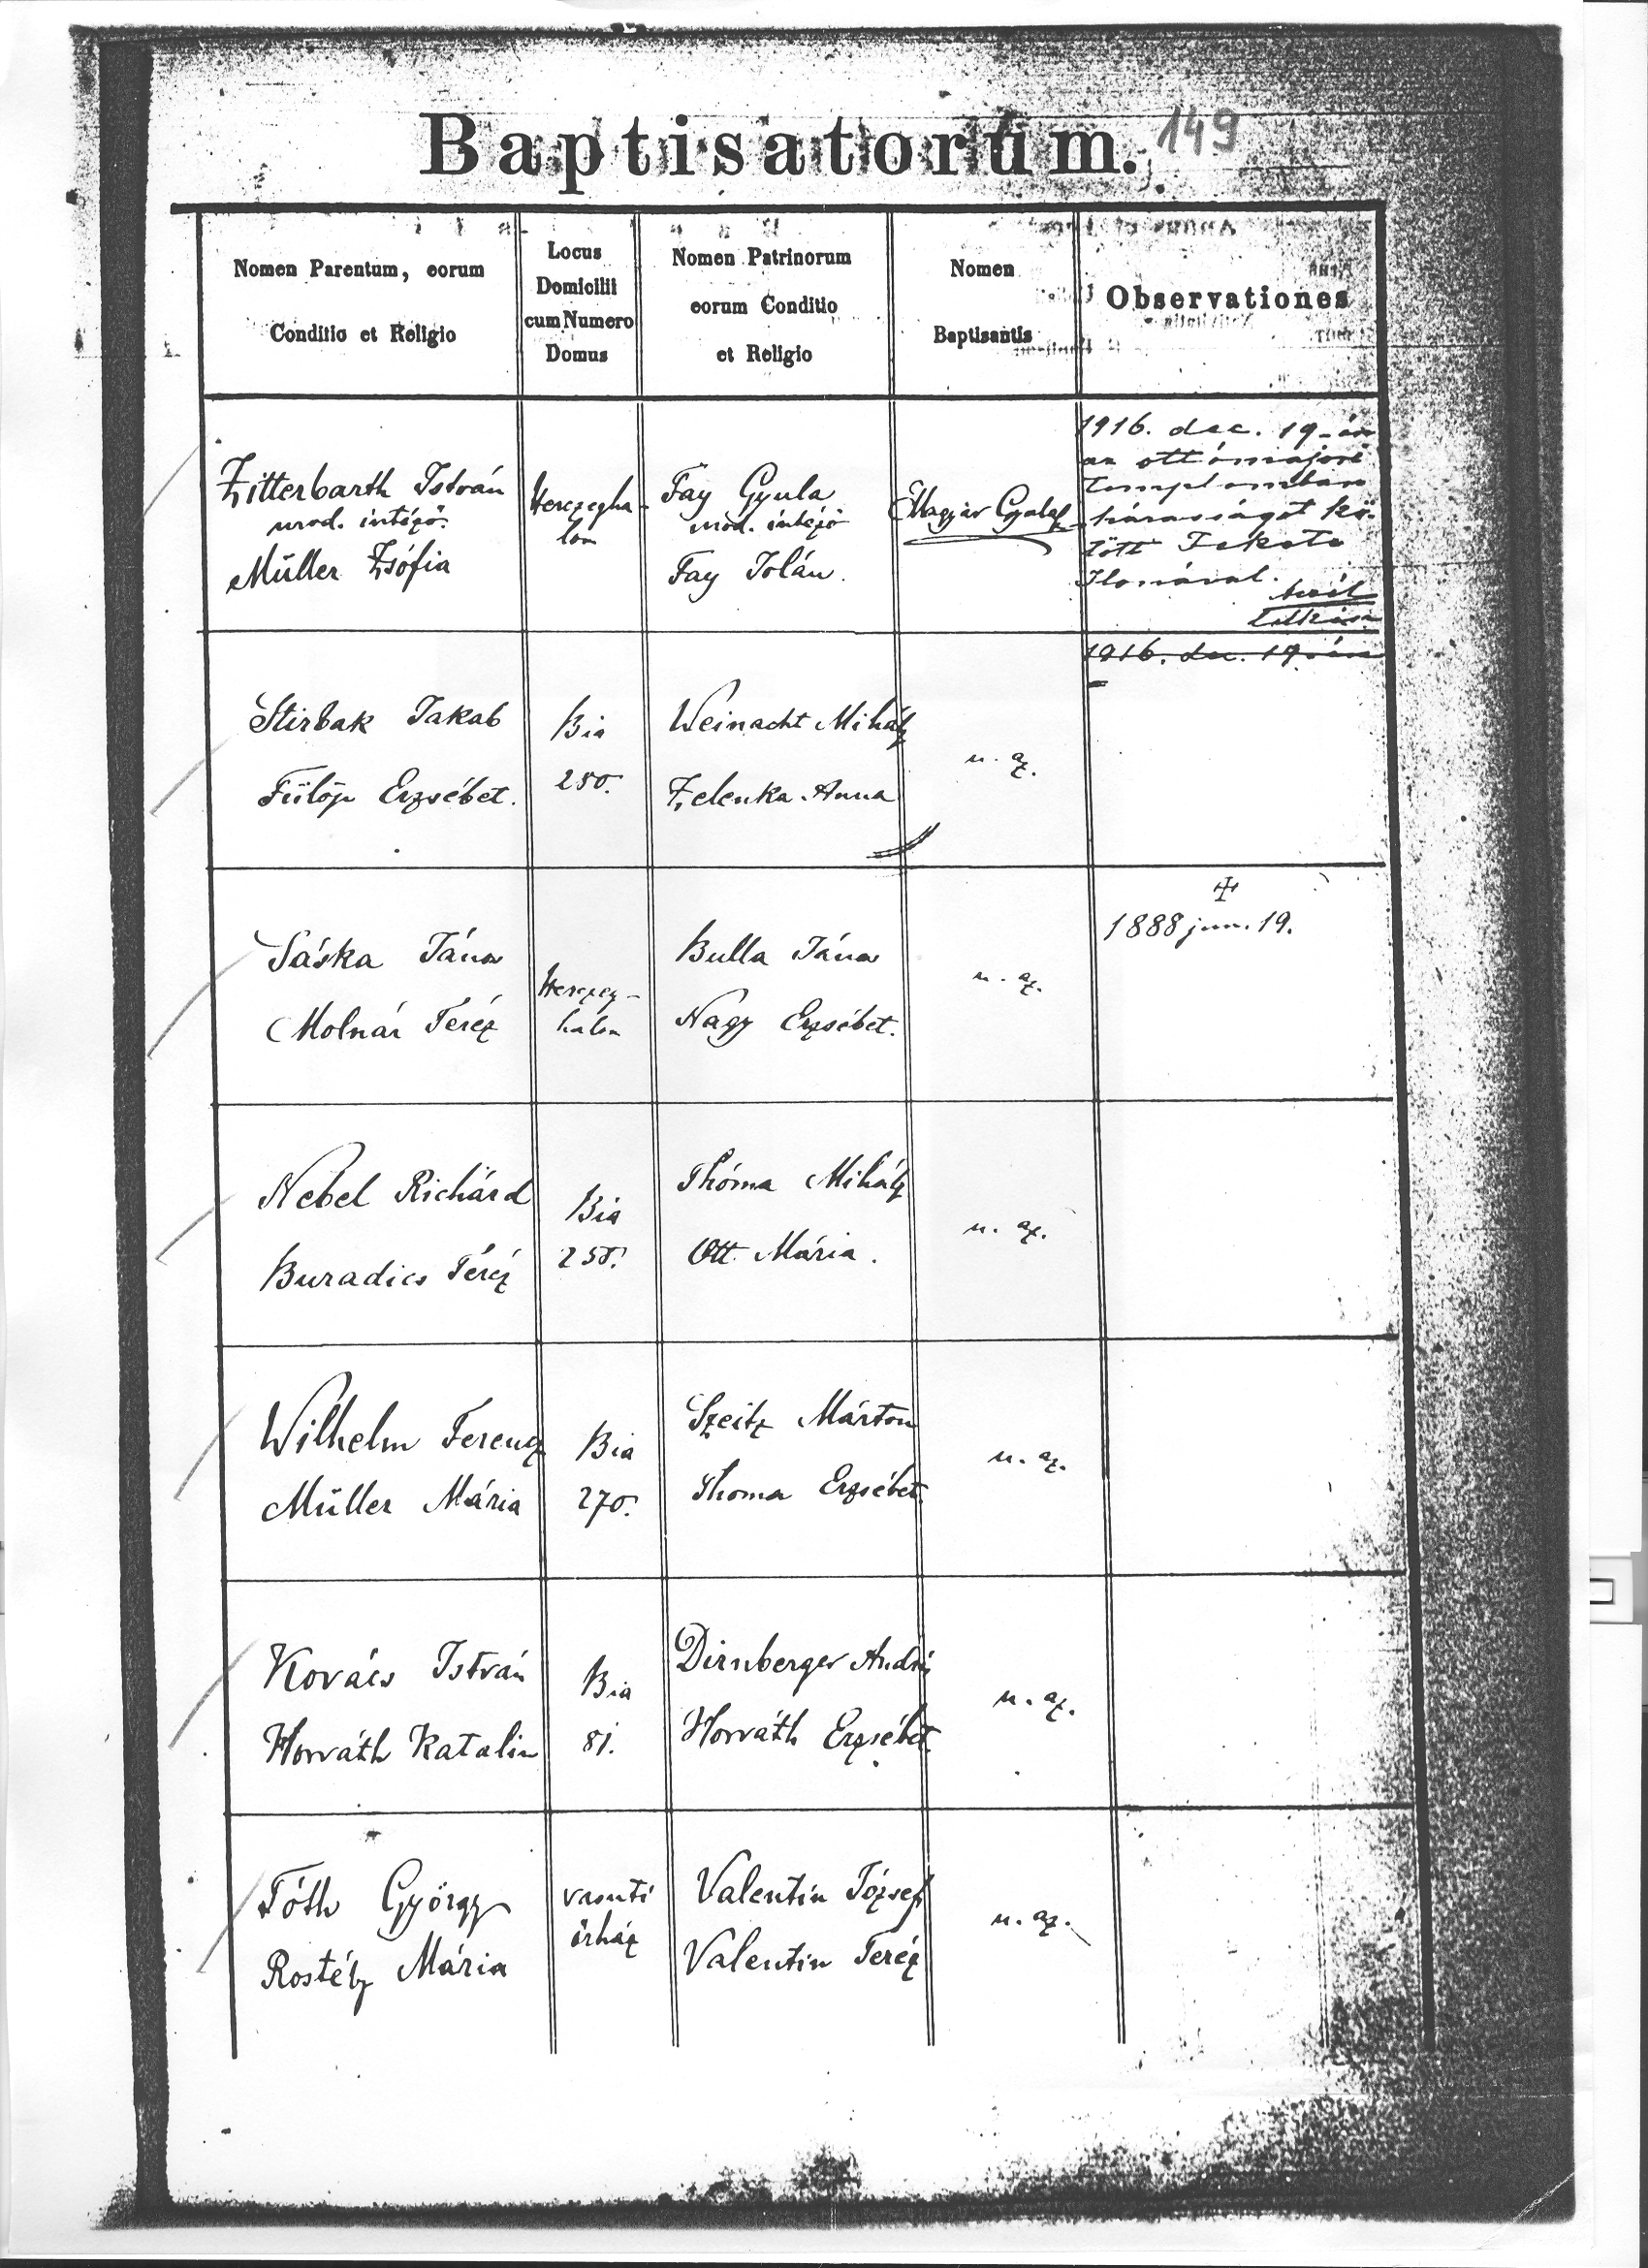 Baptisatorum.
149
Nomen Parentum, eorum
Conditio et Religio
Locus
Domicilii
cum Numero
Domus
Nomen Patrinorum
eorum Conditio
et Religio
Nomen
Baptisantis
Observationes
Zitterbarth István
urad. intéző
Müller Zsófia
Herczegha-
lom
Fay Gyula
urad. intéző
Fay Jolán.
Magyar
1916. dec. 19-én
az
templomban
házasságot kö-
tött Fekete
Ilonával.
Stirbak Jakab
Fülöp Erzsébet.
Bia
250.
Weinacht Mihály
Zelenka Anna
u. az.
1916. dec. 19-én
Sáska János
Molnár Teréz
Herczeg-
halom
Bulla János
Nagy Erzsébet.
u. az.
1888 jun. 19.
Nebel Richárd
Buradics Teréz
Bia
Thóma Mihály
Ott Mária.
u. az.
Wilhelm Ferencz
Müller Mária
Bia
270.
Szeitz Márton
Thoma Erzsébet.
u. az.
Kovács István
Horváth Katalin
Bia
81.
Dirnberger András
Horváth Erzsébet.
u. az.
Tóth György
Rostély Mária
vasuti
őrház
Valentin József
Valentin Teréz
u. az.